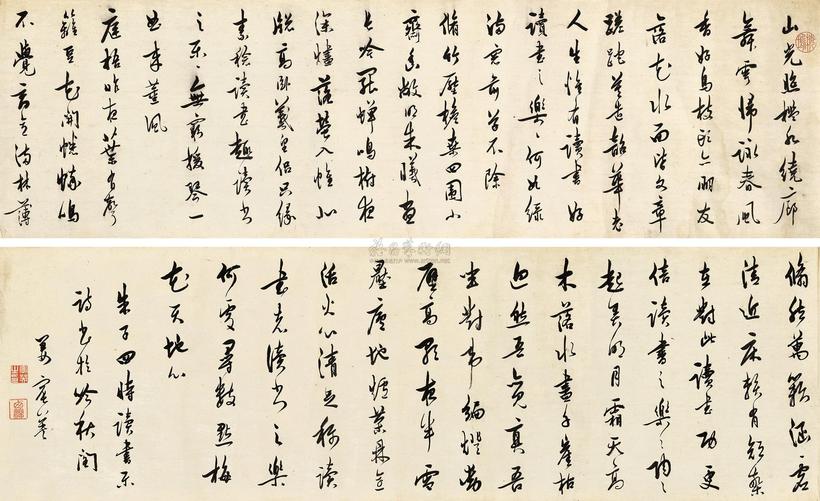 山光照檻水繞廊
舞雩歸詠春風
香好鳥枝頭亦朋友
落花水面皆文章
蹉跎莫遣韶華老
人生惟有讀書好
讀書之樂樂何如綠
滿窗前草不除
脩竹壓檐桑四圍小
齋幽敞明朱曦晝
長吟罷蟬鳴樹夜
深燼落螢入幃北
窗高臥羲皇侶只緣
素稔讀書趣讀書
之樂樂無窮援琴一
曲來薰風
庭梧昨夜葉有聲
籬豆花開蟋蟀鳴
不覺商意滿林薄
翛然萬籟涵虛
清近床賴有短檠
在對此讀書功更
倍讀書之樂樂陶陶
起弄明月霜天高
木落水盡千崖枯
迥然吾亦見真吾
坐對韋編燈動
壁高歌夜半雪
壓廬地爐茶鼎烹
活火心清足稱讀
書者讀書之樂
何處尋數點梅
花天地心
朱子四時讀書樂
詩書於秋
姜宸英